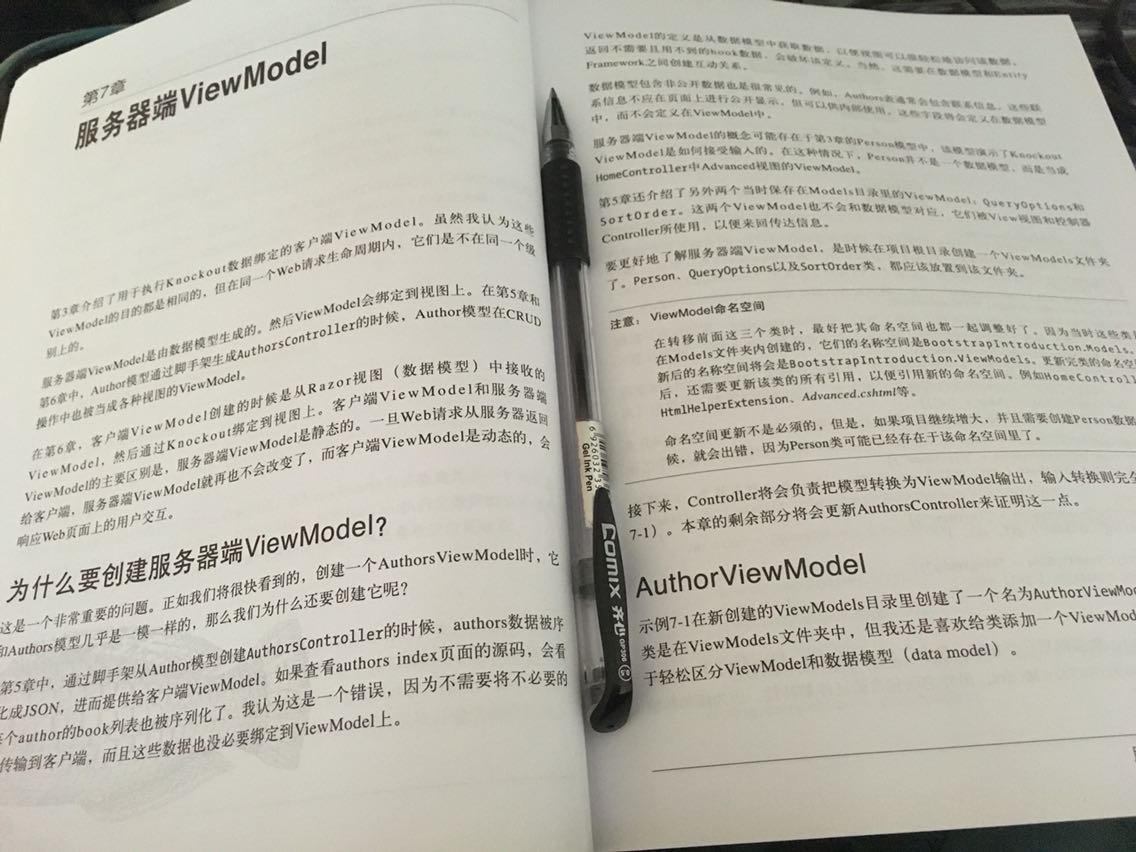 第7章
服务器端ViewModel
第3章介绍了用于执行Knockout数据绑定的客户端ViewModel。虽然我认为这些
ViewModel的目的都是相同的，但在同一个Web请求生命周期内，它们是不在同一个级
别上的。
服务器端ViewModel是由数据模型生成的。然后ViewModel会绑定到视图上。在第5章和
第6章中，Author模型通过脚手架生成AuthorsController的时候，Author模型在CRUD
操作中也被当成各种视图的ViewModel。
在第6章，客户端ViewModel创建的时候是从Razor视图（数据模型）中接收的
ViewModel，然后通过Knockout绑定到视图上。客户端ViewModel和服务器端
ViewModel的主要区别是，服务器端ViewModel是静态的。一旦Web请求从服务器返回
给客户端，服务器端ViewModel就再也不会改变了，而客户端ViewModel是动态的，会
响应Web页面上的用户交互。
为什么要创建服务器端ViewModel?
这是一个非常重要的问题。正如我们将很快看到的，创建一个AuthorsViewModel时，它
和Authors模型几乎是一模一样的，那么我们为什么还要创建它呢？
第5章中，通过脚手架从Author模型创建AuthorsController的时候，authors数据被序
化成JSON，进而提供给客户端ViewModel。如果查看authors index页面的源码，会看
个author的book列表也被序列化了。我认为这是一个错误，因为不需要将不必要的
传输到客户端，而且这些数据也没必要绑定到ViewModel上。
ViewModel的定义是从数据模型中获取数据，以便视图可以很轻松地访问该数据。
返回不需要且用不到的book数据，会破坏该定义。当然，这需要在数据模型和Entity
Framework之间创建互动关系。
数据模型包含非公开数据也是很常见的。例如，Authors表通常会包含联系信息，这些联
系信息不应在页面上进行公开显示，但可以供内部使用。这些字段将会定义在数据模型
中，而不会定义在ViewModel中。
服务器端ViewModel的概念可能存在于第3章的Person模型中，该模型演示了Knockout
ViewModel是如何接受输入的。在这种情况下，Person并不是一个数据模型，而是当成
HomeController中Advanced视图的ViewModel。
第5章还介绍了另外两个当时保存在Models目录里的ViewModel：QueryOptions和
SortOrder。这两个ViewModel也不会和数据模型对应，它们被View视图和控制器
Controller所使用，以便来回传达信息。
要更好地了解服务器端ViewModel，是时候在项目根目录创建一个ViewModels文件夹
了。Person、QueryOptions以及SortOrder类，都应该放置到该文件夹。
注意： ViewModel命名空间
在转移前面这三个类时，最好把其命名空间也都一起调整好了。因为当时这些类
在Models文件夹内创建的，它们的名称空间是BootstrapIntroduction.Models。
新后的名称空间将会是BootstrapIntroduction.ViewModels。更新完类的命名空
后，还需要更新该类的所有引用，以便引用新的命名空间。例如HomeControl
HtmlHelperExtension、Advanced.cshtml等。
命名空间更新不是必须的，但是，如果项目继续增大，并且需要创建Person数据
候，就会出错，因为Person类可能已经存在于该命名空间里了。
接下来，Controller将会负责把模型转换为ViewModel输出，输入转换则完全
7-1）。本章的剩余部分将会更新AuthorsController来证明这一点。
AuthorViewModel
示例7-1在新创建的ViewModels目录里创建了一个名为AuthorViewMod
类是在ViewModels文件夹中，但我还是喜欢给类添加一个ViewMod
于轻松区分ViewModel和数据模型（data model）。
Gel Ink Pen
COMIX 齐心 GP306